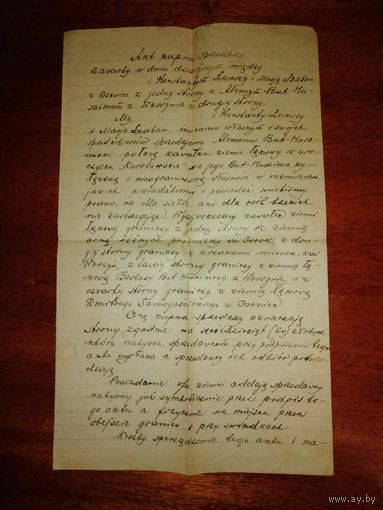 Akt kupna sprzedaży
zawarty w dniu dzisiejszym między
i Konstantym Lunscy i Marją Szaban
z Osowice z jednej strony a Aleksym But-Hu-
saimem z drugiej strony.
My, i Konstanty Lunscy
i Marja Szaban, imieniem własnym i swych
spadkobierców sprzedajemy Aleksemu But-Husa-
imowi połowę kawałka ziemi łąkowej w uro-
czysku "Korolowska" na jego But-Husaima wy-
łączną i nieograniczoną własność w rozmiarach
jakich posiadaliśmy i posiadać mieliśmy
prawo, nic dla siebie ani dla osób trzecich
nie zastrzegając. Wyżej wskazany kawałek ziemi
łąkowej graniczy z jednej strony z ziemią
z dru-
giej strony graniczy z krzakami mieszk. wsi
z trzeciej strony graniczy z ziemią łą-
kową Barbary But-Husaimowej z
czwartej strony graniczy z ziemią łąkową
Dmitrego Samojłowskiego z Osowice.
Cenę kupna-sprzedaży oznaczają
strony zgodnie na sześćdziesiąt (60) złotych
które nabywca sprzedawcom przy podpisaniu tego
aktu wypłaca a sprzedawcy ich odbiór potwier-
dzają.
Posiadanie w/w. ziemi oddają sprzedawcy
nabywcy już symbolicznie przez podpis te-
go aktu a fizycznie na miejscu przez
obejście granic i przy świadkach.
Koszty sporządzenia tego aktu i na-
www.ay.by